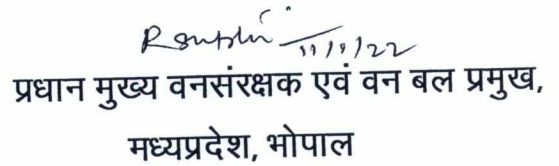 11/1/22
प्रधान मुख्य वनसंरक्षक एवं वन बल प्रमुख,
मध्यप्रदेश, भोपाल